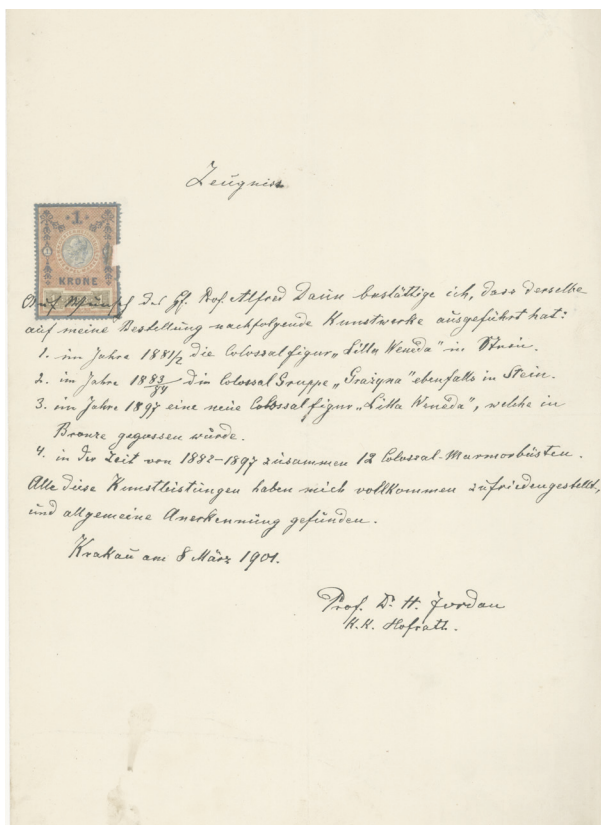 Zeugniss
1
KRONE
Auf Wunsch des H. Prof. Alfred Daun bestättige ich, dass derselbe
auf meine Bestellung nachfolgende Kunstwerke ausgeführt hat:
1. im Jahre 1881/2 die Colossalfigur „Lilla Weneda" in Stein.
2. im Jahre 1883/84 die Colossal Gruppe „Grażyna" ebenfalls in Stein.
3. im Jahre 1897 eine neue Colossalfigur „Lilla Weneda", welche in
Bronze gegossen würde.
4. in der Zeit von 1882-1897 zusammen 12 Colossal-Marmorbüsten.
Alle diese Kunstleistungen haben mich vollkommen zufriedengestellt,
und allgemeine Anerkennung gefunden.
Krakau am 8 März 1901.
Prof. Dr. H. Jordan
K.K. Hofrath.